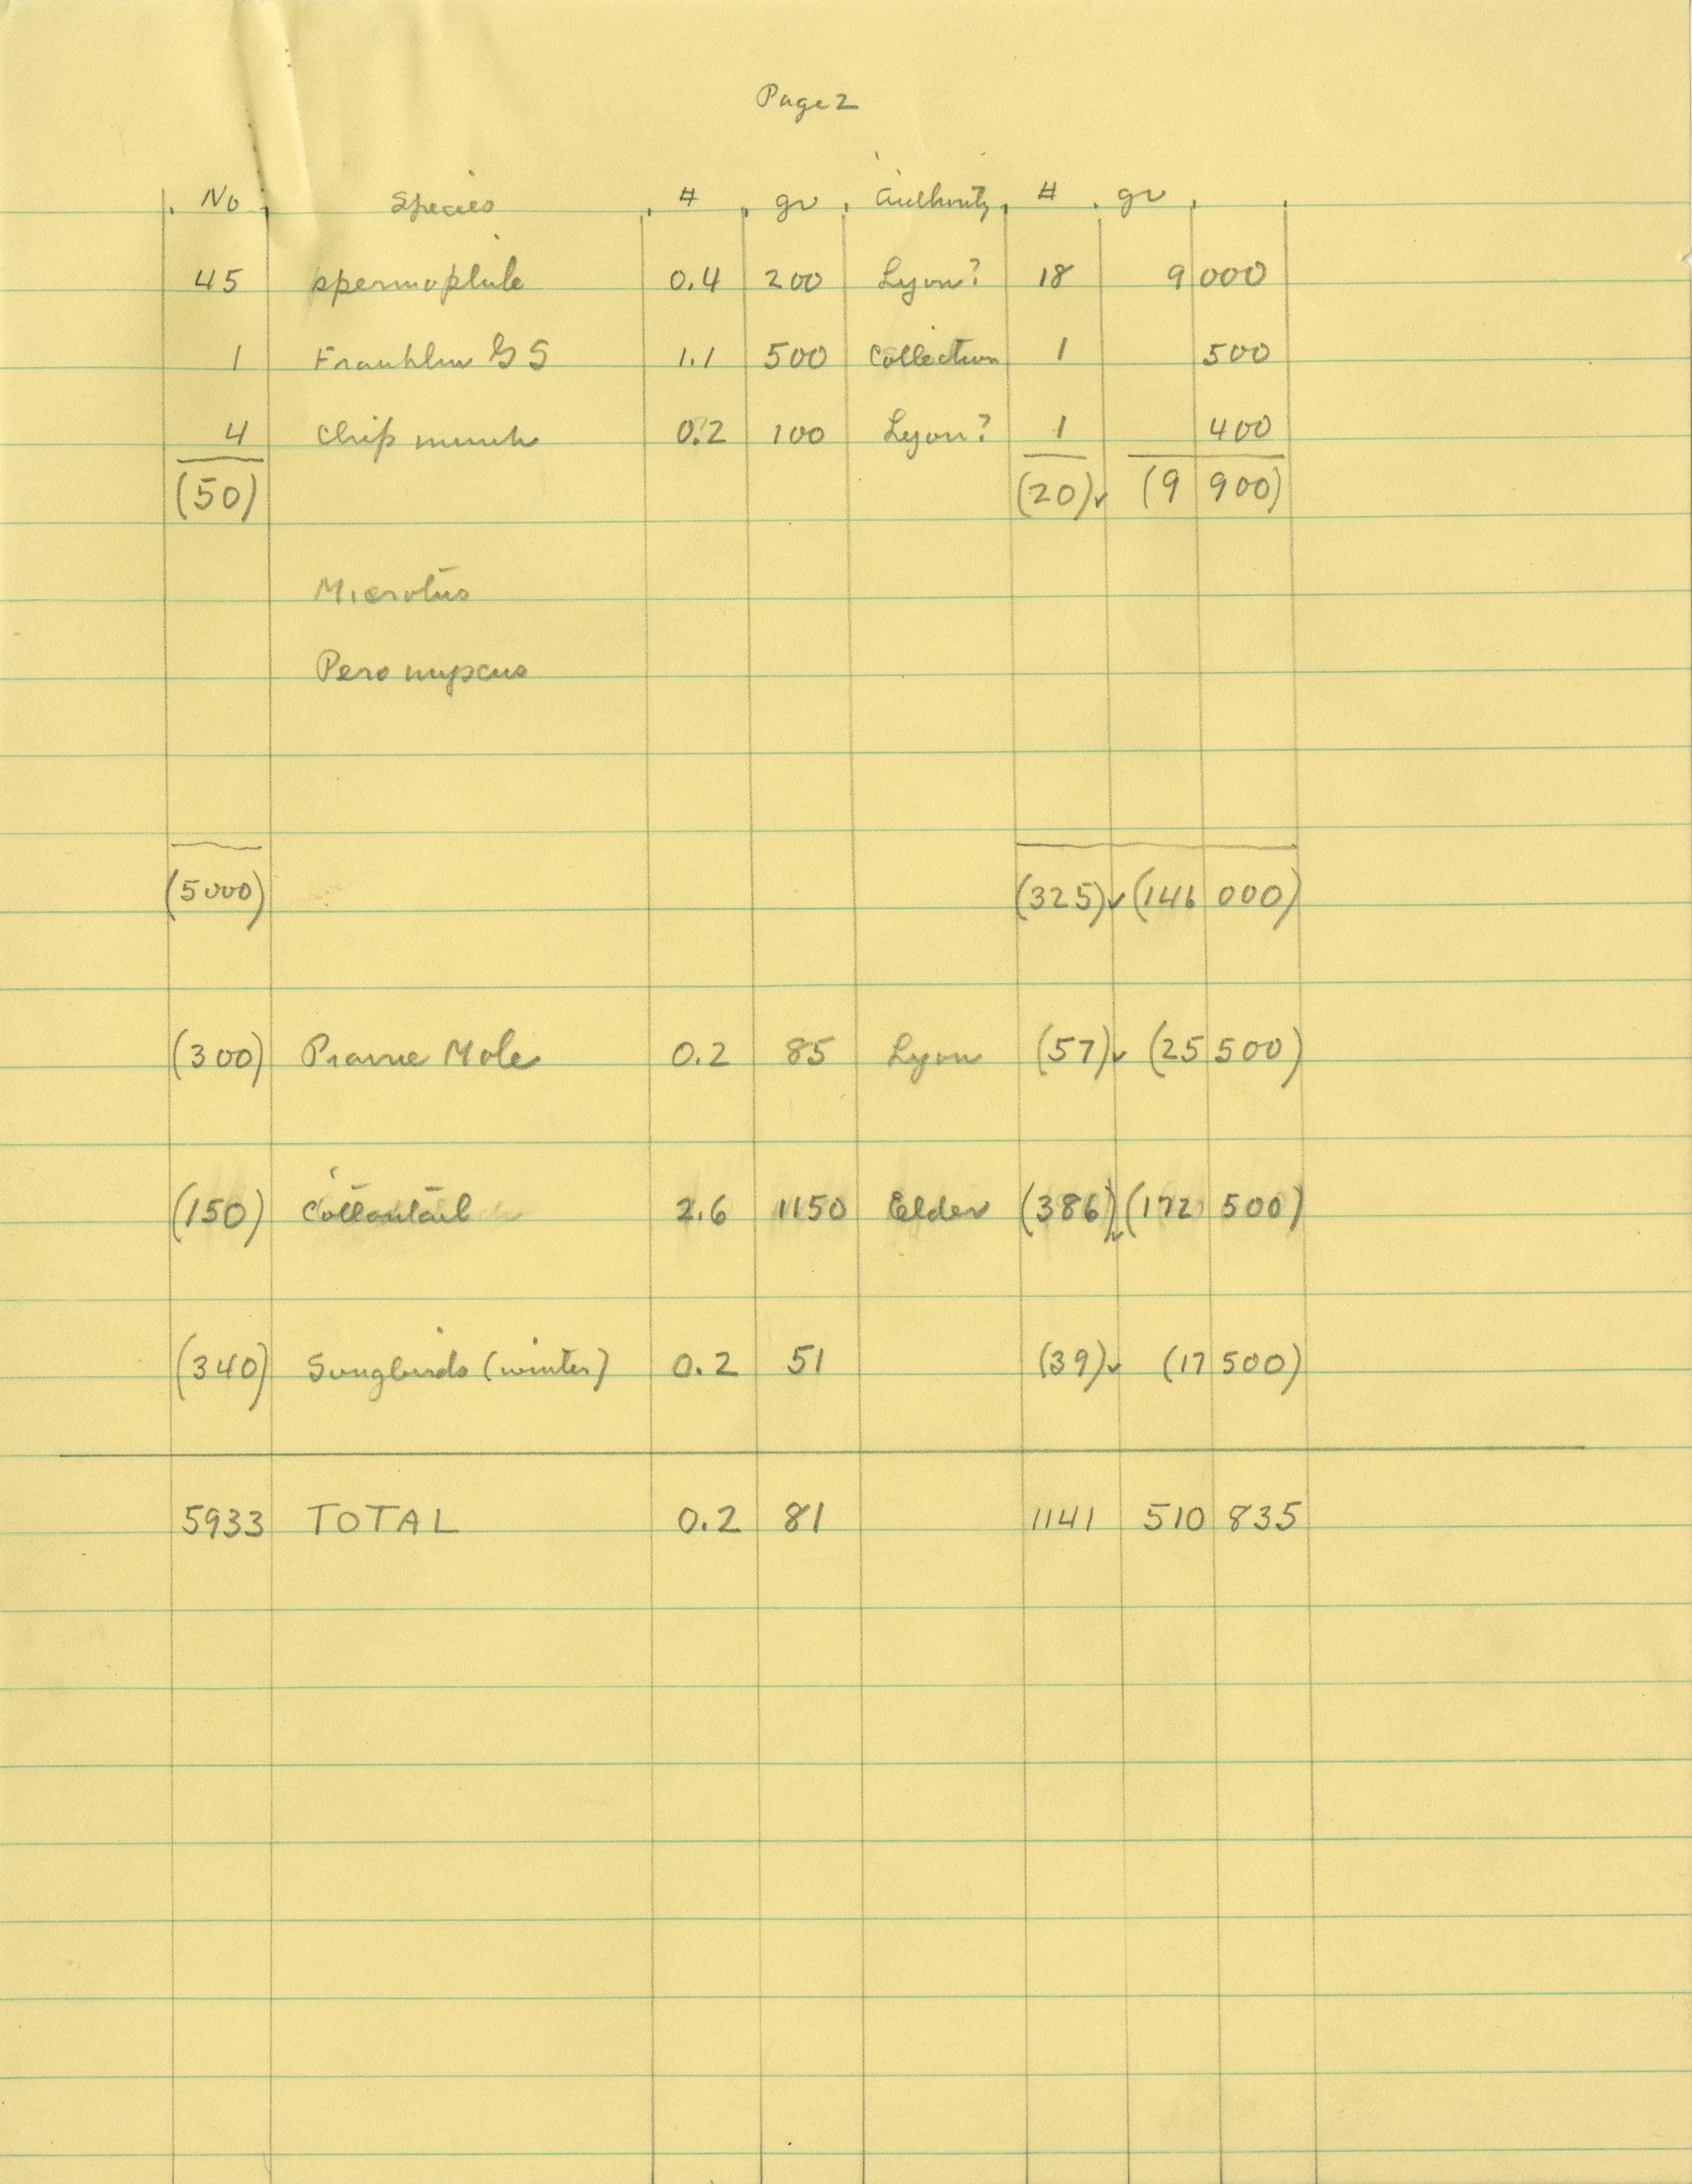 Page 2
No Species # gr Authority # gr
45 spermophile 0.4 200 Lyon? 18 9 000
1 Franklin GS 1.1 500 Collection 1 500
4 Chipmunk 0.2 100 Lyon? 1 400
(50) (20)✓ (9 900)
Microtus
Peromyscus
(5000) (325)✓ (146 000)
(300) Prairie Mole 0.2 85 Lyon (57)✓ (25 500)
(150) Cottontail 2.6 1150 Elder (386)✓ (172 500)
(340) Songbirds (winter) 0.2 51 (39)✓ (17 500)
5933 TOTAL 0.2 81 1141 510 835